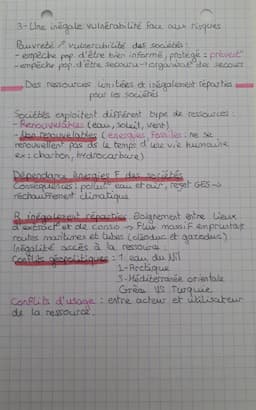 3- Une inégale vulnérabilité face aux risques
Pauvreté ↗ vulnérabilité des sociétés :
- empêche pop. d'être bien informé, protégé = prévent°
- empêche pop. d'être secouru → organisat° des secours
Des ressources limitées et inégalement réparties
pour les sociétés
Sociétés exploitent différent type de ressources :
- Renouvelables (eau, soleil, vent)
- Non renouvelables (énergies fossiles : ne se
renouvellent pas ds le temps d'une vie humaine
ex : charbon, hydrocarbure)
Dépendance énergies F des sociétés
Conséquences : pollut° eau et air, rejet GES →
réchauffement climatique
R inégalement réparties éloignement entre lieux
d'extract° et de conso → Flux massif empruntant
routes maritimes et tubes (oléoduc et gazoduc)
Inégalité accès à la ressource
Conflits géopolitiques : 1. eau du Nil
2- Arctique
3- Méditerranée orientale
Grèce VS Turquie
Conflits d'usage : entre acteur et utilisateur
de la ressource.